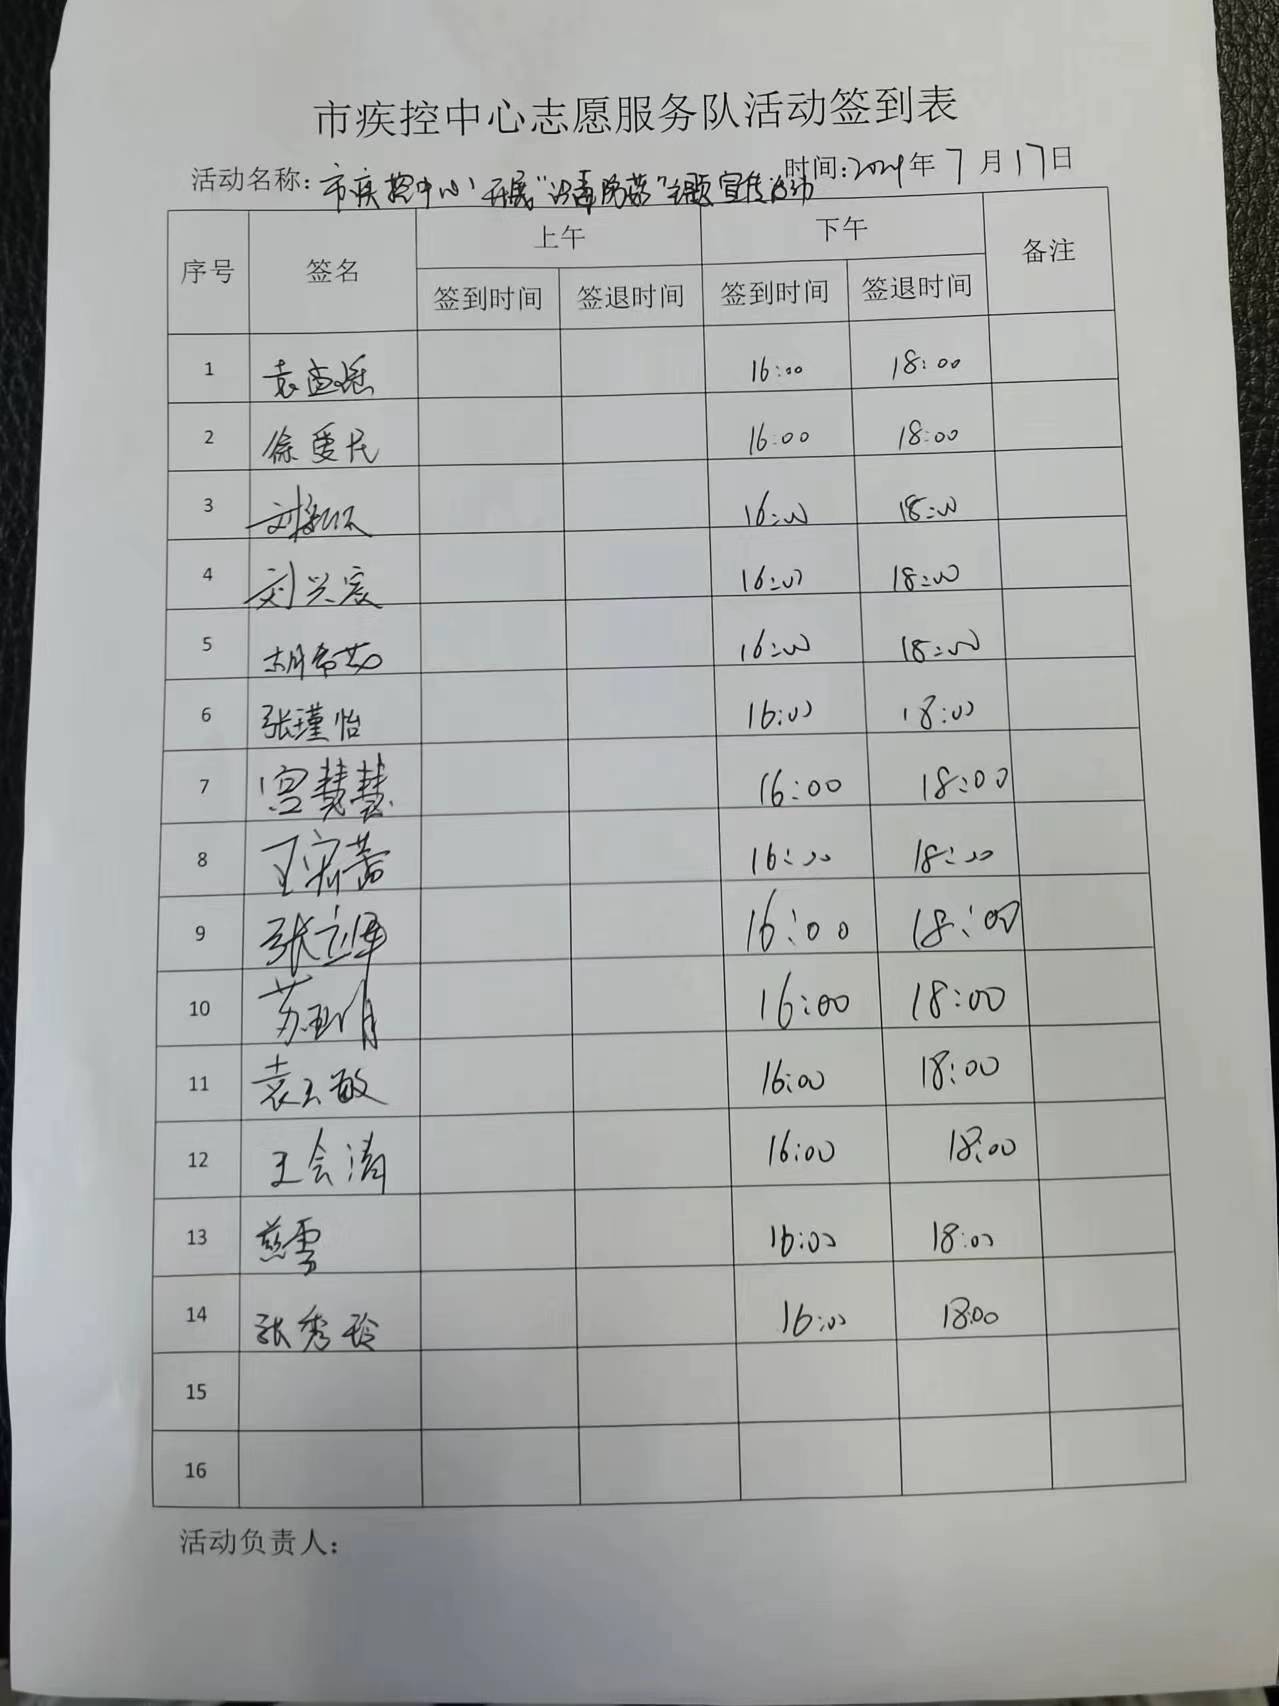 市疾控中心志愿服务队活动签到表
活动名称: 市疾控中心开展"消毒防蚊"主题宣传活动 时间:2024年7月17日
序号 签名 上午 下午 备注
签到时间 签退时间 签到时间 签退时间
1 袁 16:00 18:00
2 徐爱民 16:00 18:00
3 刘 16:00 18:00
4 刘兴宸 16:00 18:00
5 胡 16:00 18:00
6 张瑾怡 16:00 18:00
7 宫慧慧 16:00 18:00
8 王 16:00 18:00
9 张 16:00 18:00
10 苏 16:00 18:00
11 袁玉敏 16:00 18:00
12 王会涛 16:00 18:00
13 慈雪 16:00 18:00
14 张秀玲 16:00 18:00
15
16
活动负责人: